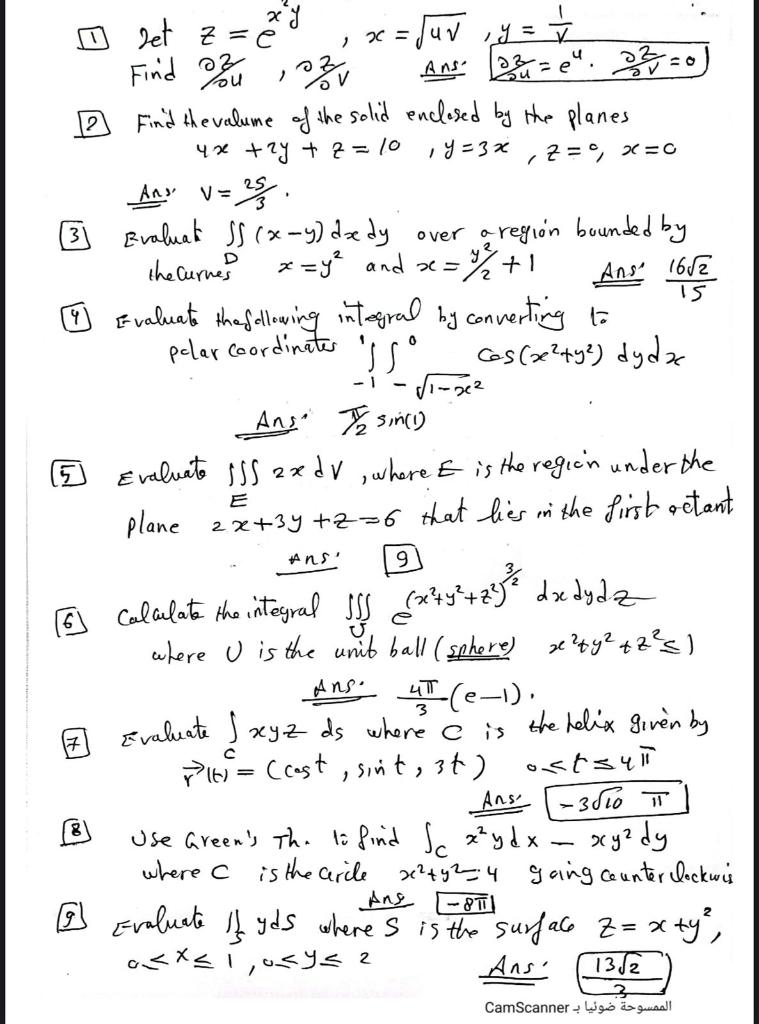 1 Let z = e^{x²y} , x = √uv , y = 1/v
Find ∂z/∂u , ∂z/∂v Ans: ∂z/∂u = e^u . ∂z/∂v = 0
2 Find the valume of the solid enclosed by the planes
4x + 2y + z = 10 , y = 3x , z = 0, x = 0
Ans: V = 25/3 .
3 Evaluat ∬_D (x-y) dx dy over a region bounded by
the Curves x = y² and x = y²/2 + 1 Ans: 16√2/15
4 Evaluate the following integral by converting to
polar Coordinates ∫_{-1}^{1} ∫_{-√1-x²}^{0} Cos(x²+y²) dy dx
Ans: π/2 sin(1)
5 Evaluate ∭_E 2x dV , where E is the region under the
Plane 2x+3y+z=6 that lies in the first octant
Ans: 9
6 Calculate the integral ∭_U e^{(x²+y²+z²)^{3/2}} dx dy dz
where U is the unit ball (sphere) x²+y²+z² ≤ 1
Ans: 4π/3 (e-1).
7 Evaluate ∫_C xyz ds where C is the helix given by
r⃗(t) = (cost, sint, 3t) 0 ≤ t ≤ 4π
Ans: -3√10 π
8 Use Green's Th. to find ∫_C x²y dx - xy² dy
where C is the circle x²+y²=4 going counter clockwis
Ans -8π
9 Evaluate ∬_S y ds where S is the surface z = x+y²,
0 ≤ x ≤ 1 , 0 ≤ y ≤ 2
Ans: 13√2/3
الممسوحة ضوئيا بـ CamScanner